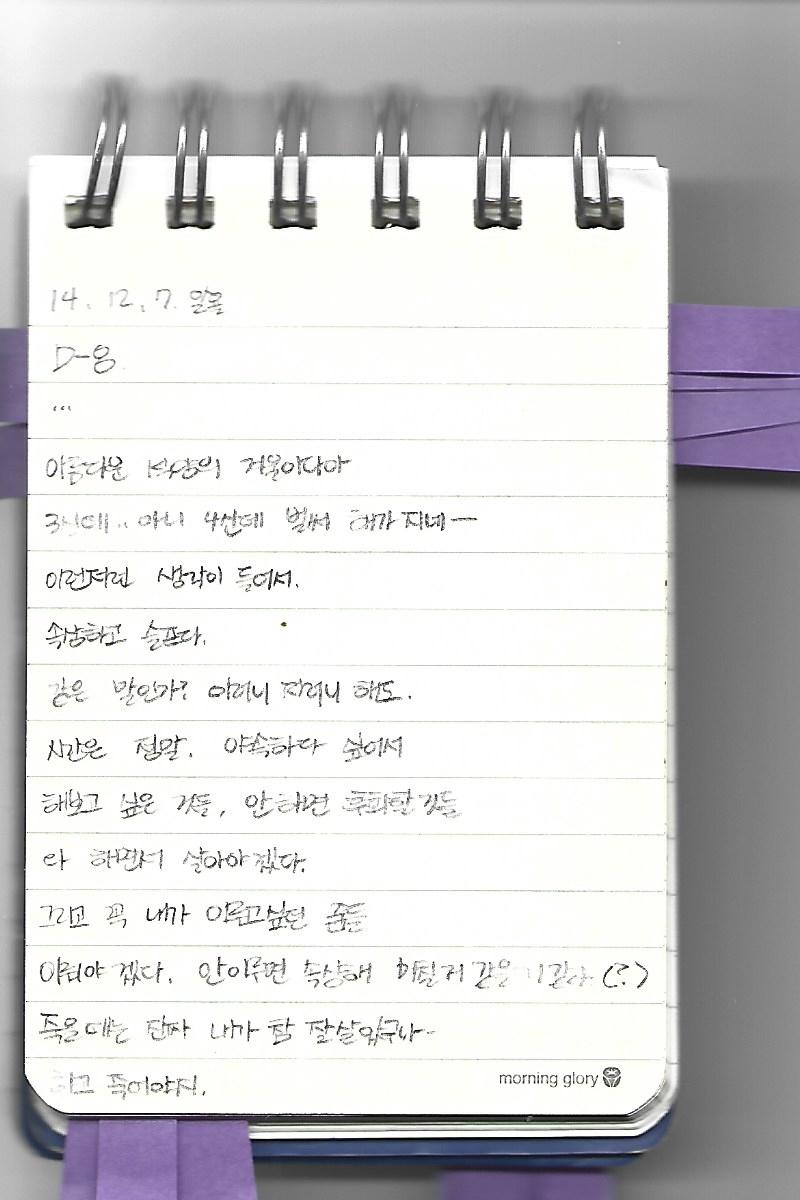 14. 12. 7. 일요일
D-8
...
아름다운 석양의 겨울이다아
3신데.. 아니 4신데 벌써 해가 지네ㅡ
이런저런 생각이 들어서.
속상하고 슬프다.
같은 말인가? 이러니 저러니 해도.
시간은 정말. 야속하다 싶어서
해보고 싶은 것들, 안하면 후회할 것들
다 하면서 살아야겠다.
그리고 꼭 내가 이루고싶던 꿈들
이뤄야겠다. 안이루면 속상해 미칠거 같은 (?)
죽을 때는 진짜 내가 참 잘살았구나~
하고 죽어야지.
morning glory